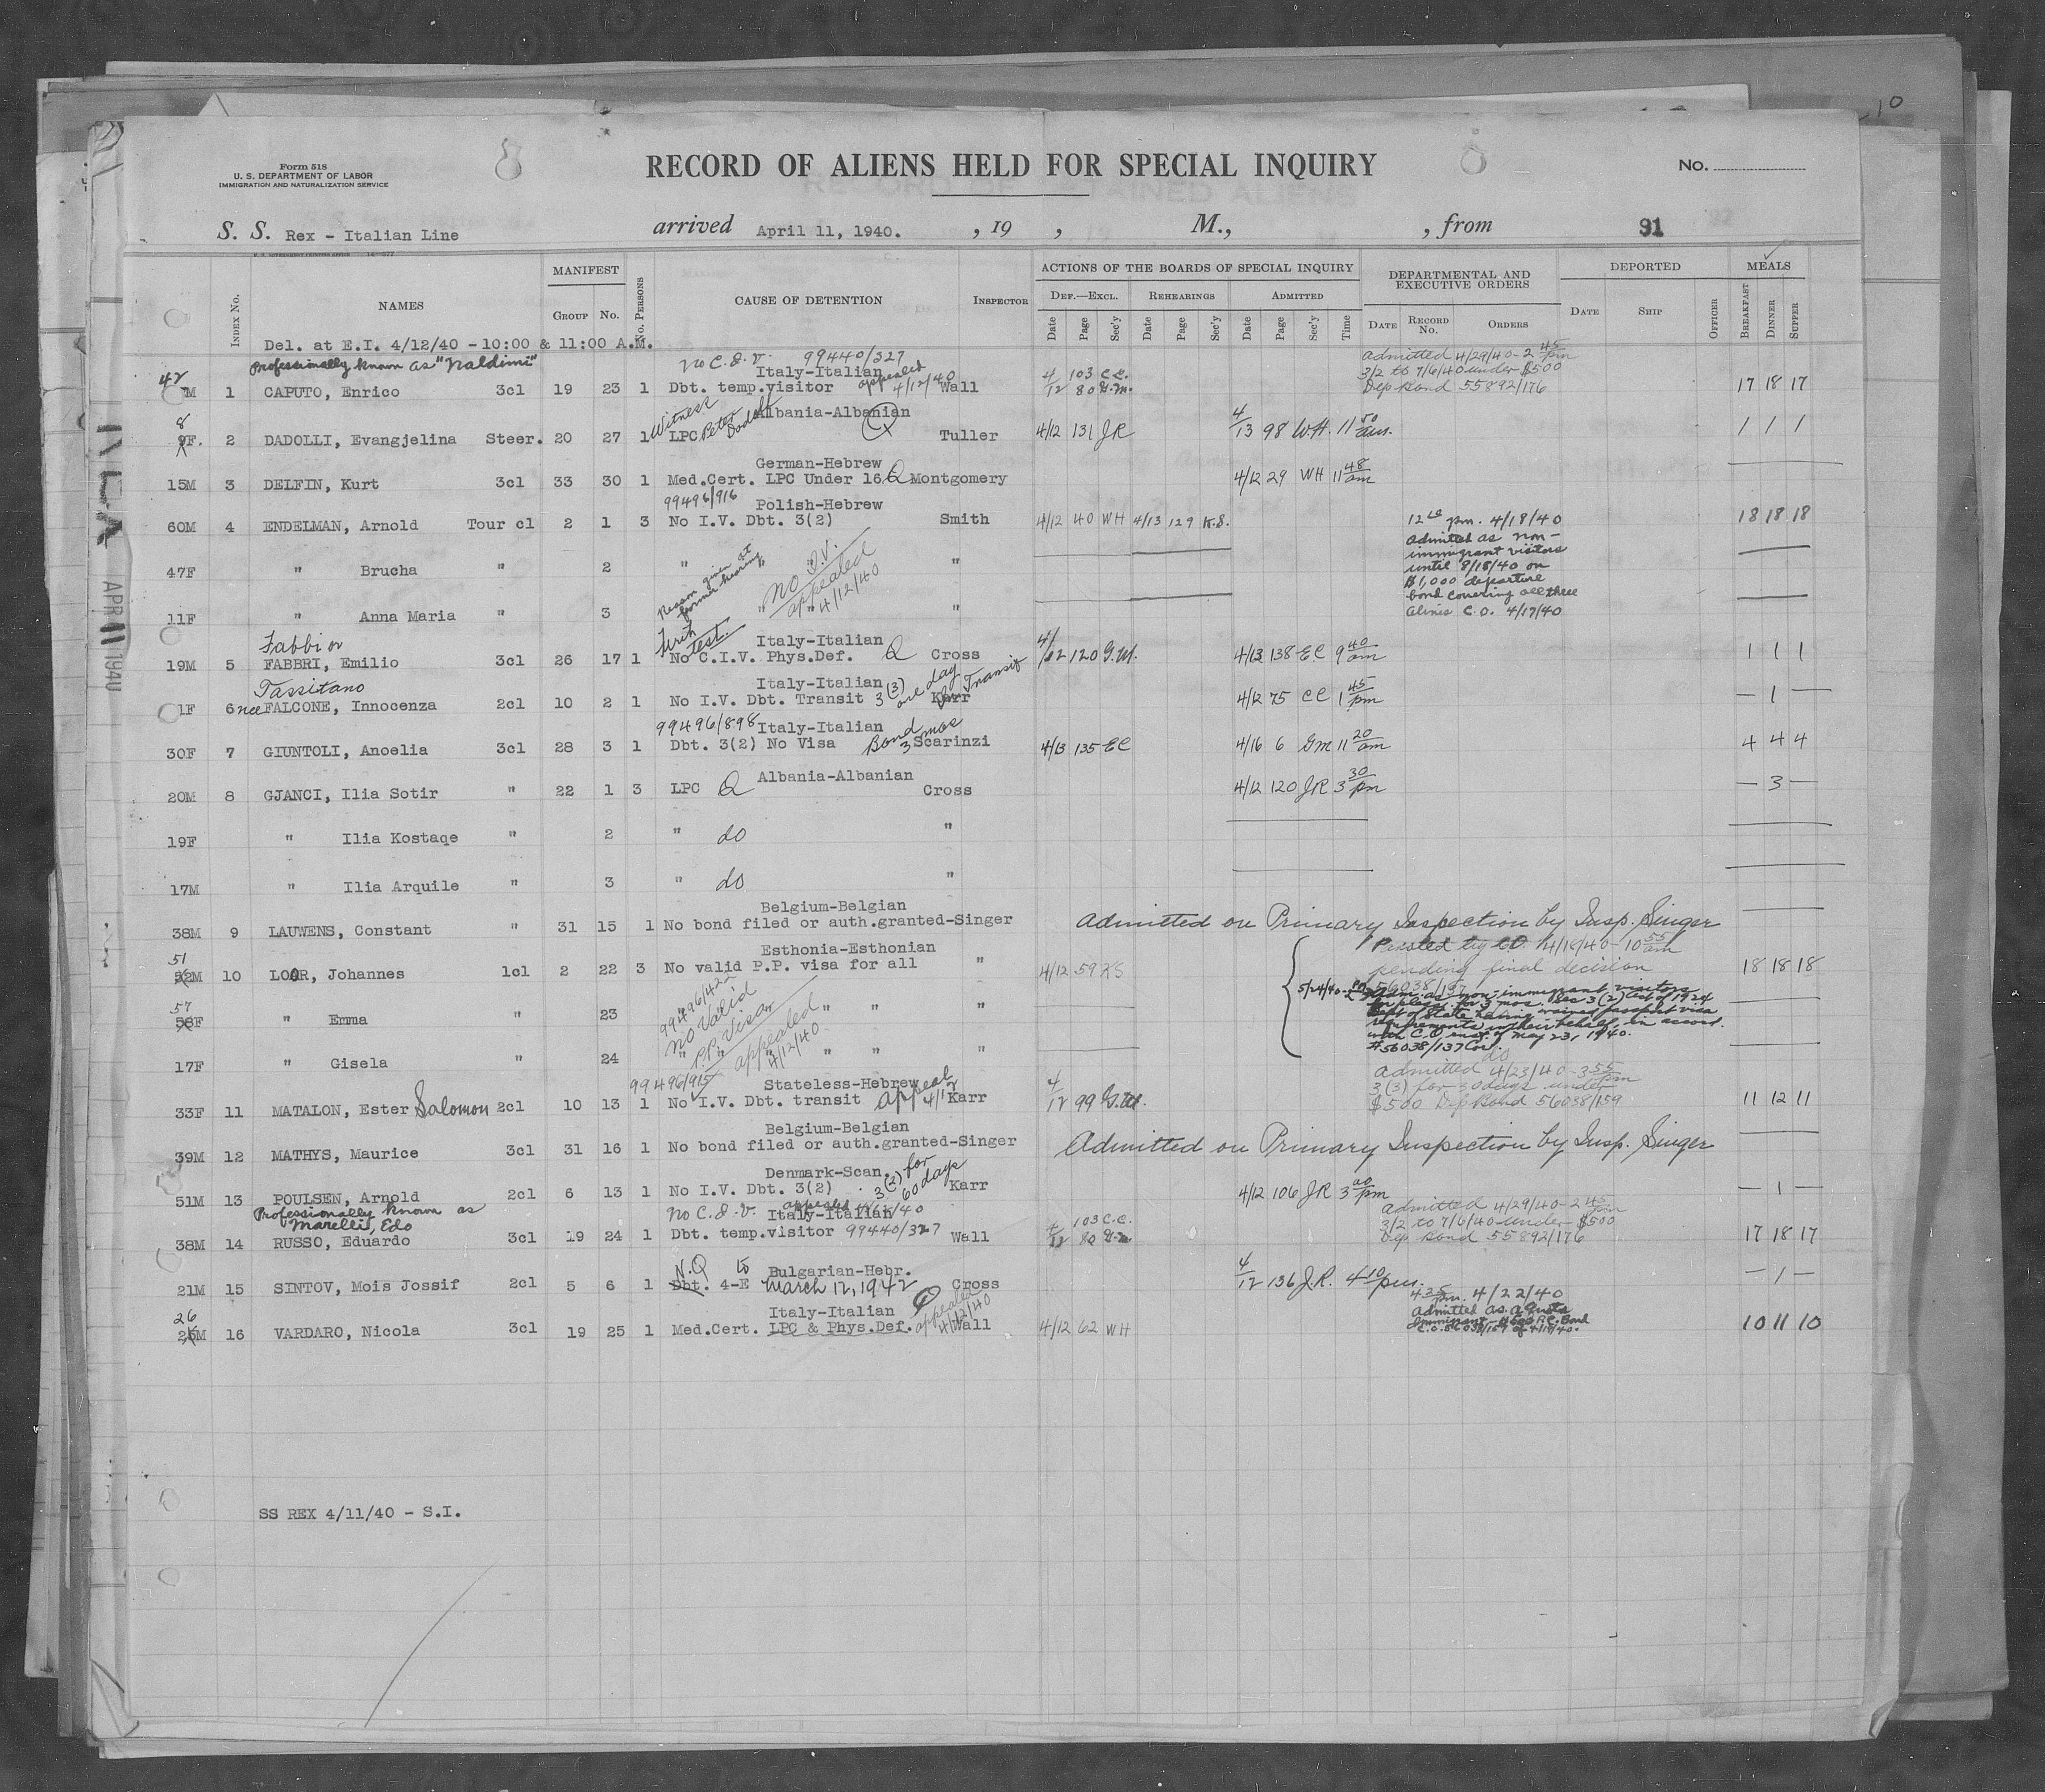 10
Form 518
U. S. DEPARTMENT OF LABOR
IMMIGRATION AND NATURALIZATION SERVICE
8
RECORD OF ALIENS HELD FOR SPECIAL INQUIRY
No.
S. S. Rex - Italian Line arrived April 11, 1940. , 19 , M., , from 91
Index No. NAMES MANIFEST GROUP No. No. PERSONS CAUSE OF DETENTION INSPECTOR ACTIONS OF THE BOARDS OF SPECIAL INQUIRY DEF.—EXCL. REHEARINGS ADMITTED DEPARTMENTAL AND EXECUTIVE ORDERS DEPORTED MEALS
Date Page Sec'y Date Page Sec'y Date Page Sec'y Time DATE RECORD No. ORDERS DATE SHIP OFFICER BREAKFAST DINNER SUPPER
Del. at E.I. 4/12/40 - 10:00 & 11:00 A.M.
Professionally known as "Naldini" No C.I.V. 99440/327 Admitted 4/29/40 - 2 45 pm
Italy-Italian appealed 4/12/40 3/2 to 7/6/40 under $500
42 M 1 CAPUTO, Enrico 3cl 19 23 1 Dbt. temp.visitor Wall 4/12 103 C.C. 80 G.M. Dep Bond 55892/176 17 18 17
Witness Peter Dadolli Albania-Albanian
8 F. 2 DADOLLI, Evangjelina Steer. 20 27 1 LPC Tuller 4/12 131 JR 4/13 98 W.H. 11 50 am. 1 1 1
German-Hebrew
15M 3 DELFIN, Kurt 3cl 33 30 1 Med.Cert. LPC Under 16 Q Montgomery 4/12 29 WH 11 48 am
99496/916 Polish-Hebrew
60M 4 ENDELMAN, Arnold Tour cl 2 1 3 No I.V. Dbt. 3(2) Smith 4/12 40 WH 4/13 129 K.S. 12 pm. 4/18/40 18 18 18
Admitted as non-
immigrant visitors
47F " Brucha " 2 " Reason given at former hearing No I.V. appealed 4/12/40 " until 8/18/40 on
$1,000 departure
bond covering all three
11F " Anna Maria " 3 " " aliens C.O. 4/17/40
Fabbi or test. Italy-Italian
19M 5 FABBRI, Emilio 3cl 26 17 1 No C.I.V. Phys.Def. Q Cross 4/12 120 G.M. 4/13 138 EC 9 40 am 1 1 1
Tassitano Italy-Italian 3(3) one day for Transit
1F 6 nee FALCONE, Innocenza 2cl 10 2 1 No I.V. Dbt. Transit Karr 4/12 75 CC 1 45 pm — 1 —
99496/898 Italy-Italian Bond 3 mos
30F 7 GIUNTOLI, Anoelia 3cl 28 3 1 Dbt. 3(2) No Visa Scarinzi 4/13 135 EC 4/16 6 GM 11 20 am 4 4 4
Albania-Albanian
20M 8 GJANCI, Ilia Sotir " 22 1 3 LPC Q Cross 4/12 120 JR 3 30 pm — 3 —
19F " Ilia Kostaqe " 2 " do "
17M " Ilia Arquile " 3 " do "
Belgium-Belgian
38M 9 LAUWENS, Constant " 31 15 1 No bond filed or auth.granted-Singer Admitted on Primary Inspection by Insp. Singer
Esthonia-Esthonian Paroled by CO 4/18/40 - 10 55 am
51 52M 10 LOOR, Johannes 1cl 2 22 3 No valid P.P. visa for all " 4/12 59 KS pending final decision 18 18 18
99496/422 56038/137
5/24/40 Adm. as non-immigrant visitors
for pleas. for 3 mos. Sec 3(2) Act of 1924
57 58F " Emma " 23 No Valid P.P. Visa appealed 4/12/40 " " " Dept of State having waived passport visa
requirements in their behalf, in accord.
with C.O. inst. of May 23, 1940.
17F " Gisela " 24 " " " " " #56038/137 Cor.
do
99496/915 Stateless-Hebrew appeal 4/12 Admitted 4/23/40 - 3 55 pm
3(3) for 30 days under
33F 11 MATALON, Ester Salomon 2cl 10 13 1 No I.V. Dbt. transit Karr 4/12 99 G.M. $500 Dep Bond 56038/159 11 12 11
Belgium-Belgian
39M 12 MATHYS, Maurice 3cl 31 16 1 No bond filed or auth.granted-Singer Admitted on Primary Inspection by Insp. Singer
Denmark-Scan. 3(2) for 60 days
51M 13 POULSEN, Arnold 2cl 6 13 1 No I.V. Dbt. 3(2) Karr 4/12 106 JR 3 00 pm — 1 —
Professionally known as Marelli, Edo No C.I.V. appealed 4/12/40 Italy-Italian Admitted 4/29/40 - 2 45 pm
3/2 to 7/6/40 under $500
38M 14 RUSSO, Eduardo 3cl 19 24 1 Dbt. temp.visitor 99440/327 Wall 4/12 103 C.C. 80 G.M. Dep Bond 55892/176 17 18 17
N.Q to Bulgarian-Hebr.
21M 15 SINTOV, Mois Jossif 2cl 5 6 1 Dbt. 4-E March 12, 1942 Cross 4/12 136 J.R. 4 10 pm. — 1 —
Italy-Italian appealed 4/12/40 4 25 pm. 4/22/40
Admitted as a Quota
26 M 16 VARDARO, Nicola 3cl 19 25 1 Med.Cert. LPC & Phys.Def. Wall 4/12 62 WH Immigrant - $500 P.C. Bond 10 11 10
SS REX 4/11/40 - S.I.
APR 11 1940